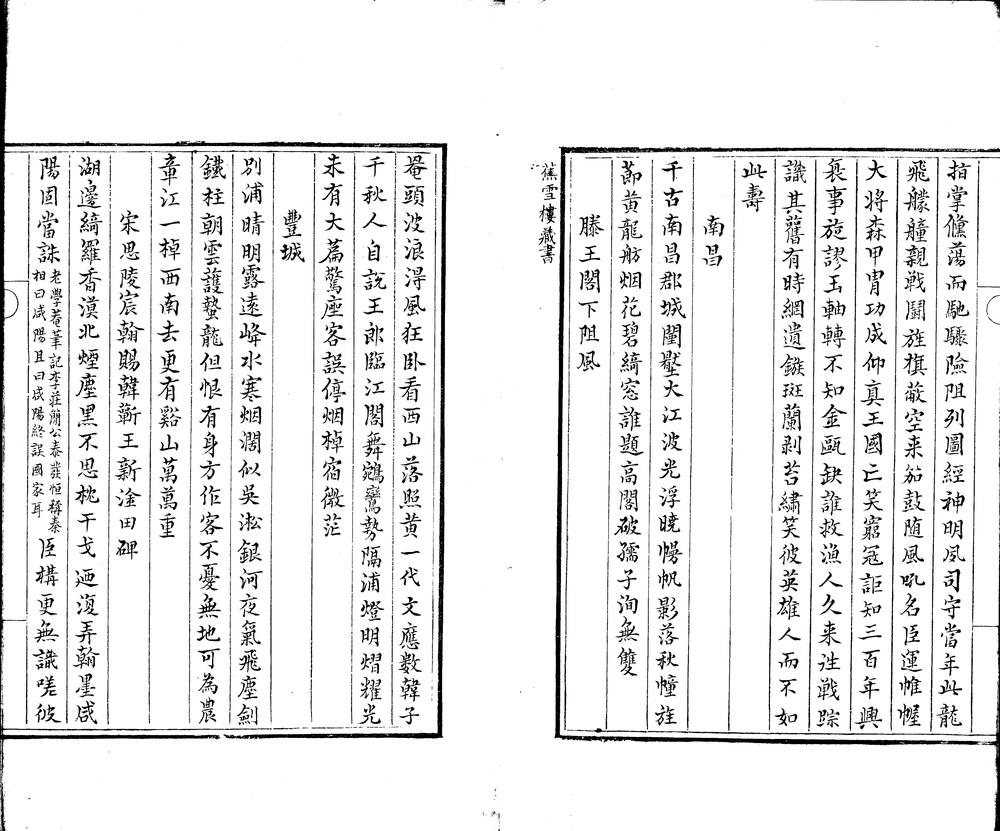 指掌儵蕩而馳驟險阻列圖經神明夙司守當年此龍
飛艨艟親戰鬬旌旗蔽空来笳鼓随風吼名臣運帷幄
大将森甲冑功成仰真王國亡笑窮冦詎知三百年興
衰事旋謬玉軸轉不知金甌缺誰救漁人久来往戰踪
識其舊有時網遺鏃斑蘭剥苔繡笑彼英雄人而不如
此壽
南昌
千古南昌郡城闉壓大江波光浮曉幔帆影落秋幢旌
節黄龍舫烟花碧綺窓誰題高閣破孺子洵無雙
滕王閣下阻風
蕉雪樓藏書
菴頭波浪浔風狂卧看西山落照黄一代文應數韓子
千秋人自説王郎臨江閣舞鵷鸞勢隔浦燈明熠耀光
未有大篇驚座客誤停烟棹宿微茫
豐城
别浦晴明露遠峰水寒烟濶似吳淞銀河夜氣飛塵劍
鐵柱朝雲護蟄龍但恨有身方作客不憂無地可為農
章江一棹西南去更有谿山萬萬重
宋思陵宸翰賜韓蘄王新淦田碑
湖邊綺羅香漠北煙塵黑不思枕干戈迺復弄翰墨咸
陽固當誅老學菴筆記李莊簡公泰發恒稱秦相曰咸陽且曰咸陽終誤國家耳臣構更無識嗟彼